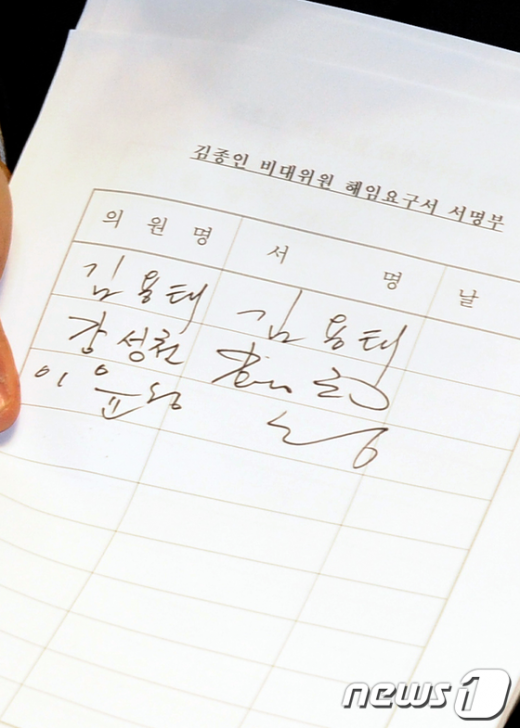 김종인 비대위원 해임요구서 서명부
의 원 명 서 명 날
김용태 김용태
강성천
이윤성
news1